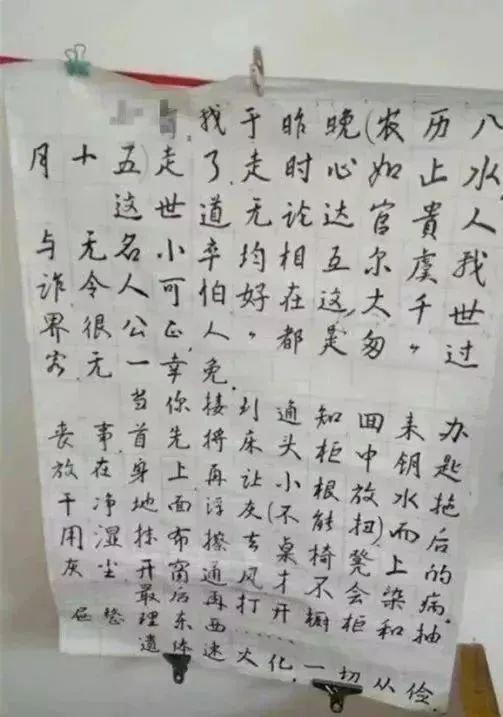 我于昨晚(农历八
月十五)走了,走时心如止水,
这世道无论达官貴人
与无名小卒均相互尔虞我
诈,令人可怕,好在这大千世
界很公正,人"都是匆匆"过
客无一幸免.
当你接到通知回来办
丧事首先将床头柜中钥匙
放在身上再让小根放水拖
干净地面浮灰(不能扭)而后
用湿抹布擦去桌椅凳上的
灰尘开窗通风才不会染病.
最后再打开橱柜和抽
屉整理东西......
遗体速火化,一切从俭.